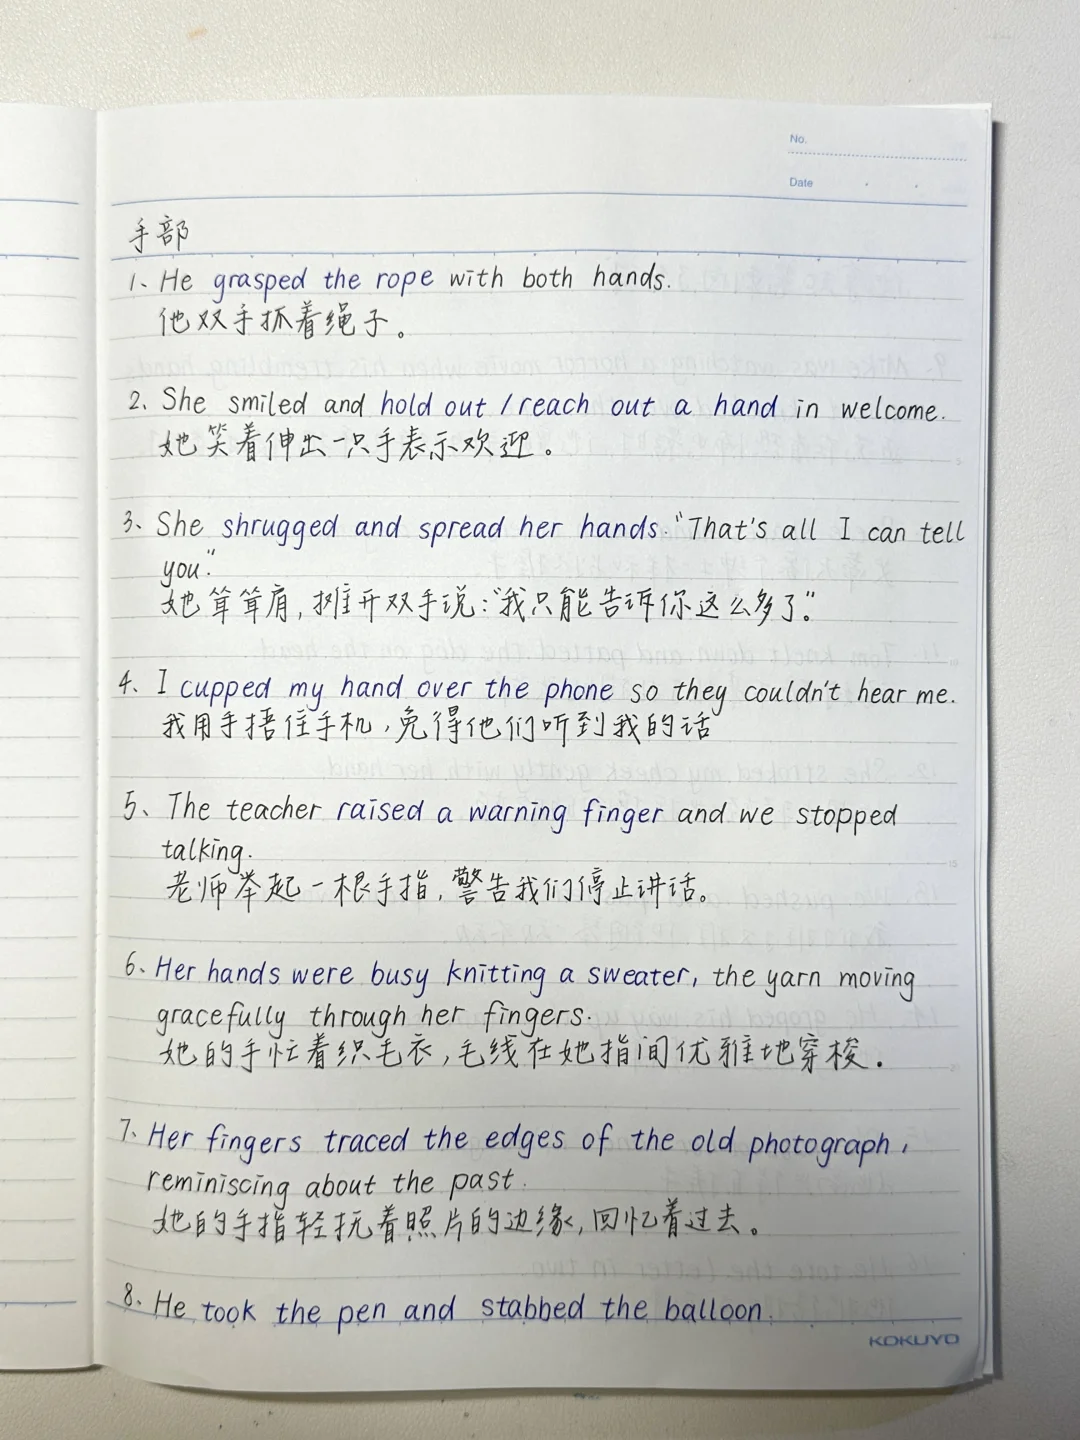 No.
Date
手部
1、He grasped the rope with both hands.
他双手抓着绳子。
2、She smiled and hold out / reach out a hand in welcome.
她笑着伸出一只手表示欢迎。
3、She shrugged and spread her hands. "That's all I can tell
you."
她耸耸肩，摊开双手说："我只能告诉你这么多了."
4、I cupped my hand over the phone so they couldn't hear me.
我用手捂住手机，免得他们听到我的话
5、The teacher raised a warning finger and we stopped
talking.
老师举起一根手指，警告我们停止讲话。
6、Her hands were busy knitting a sweater, the yarn moving
gracefully through her fingers.
她的手忙着织毛衣，毛线在她指间优雅地穿梭.
7、Her fingers traced the edges of the old photograph,
reminiscing about the past.
她的手指轻抚着照片的边缘，回忆着过去。
8、He took the pen and stabbed the balloon.
KOKUYO